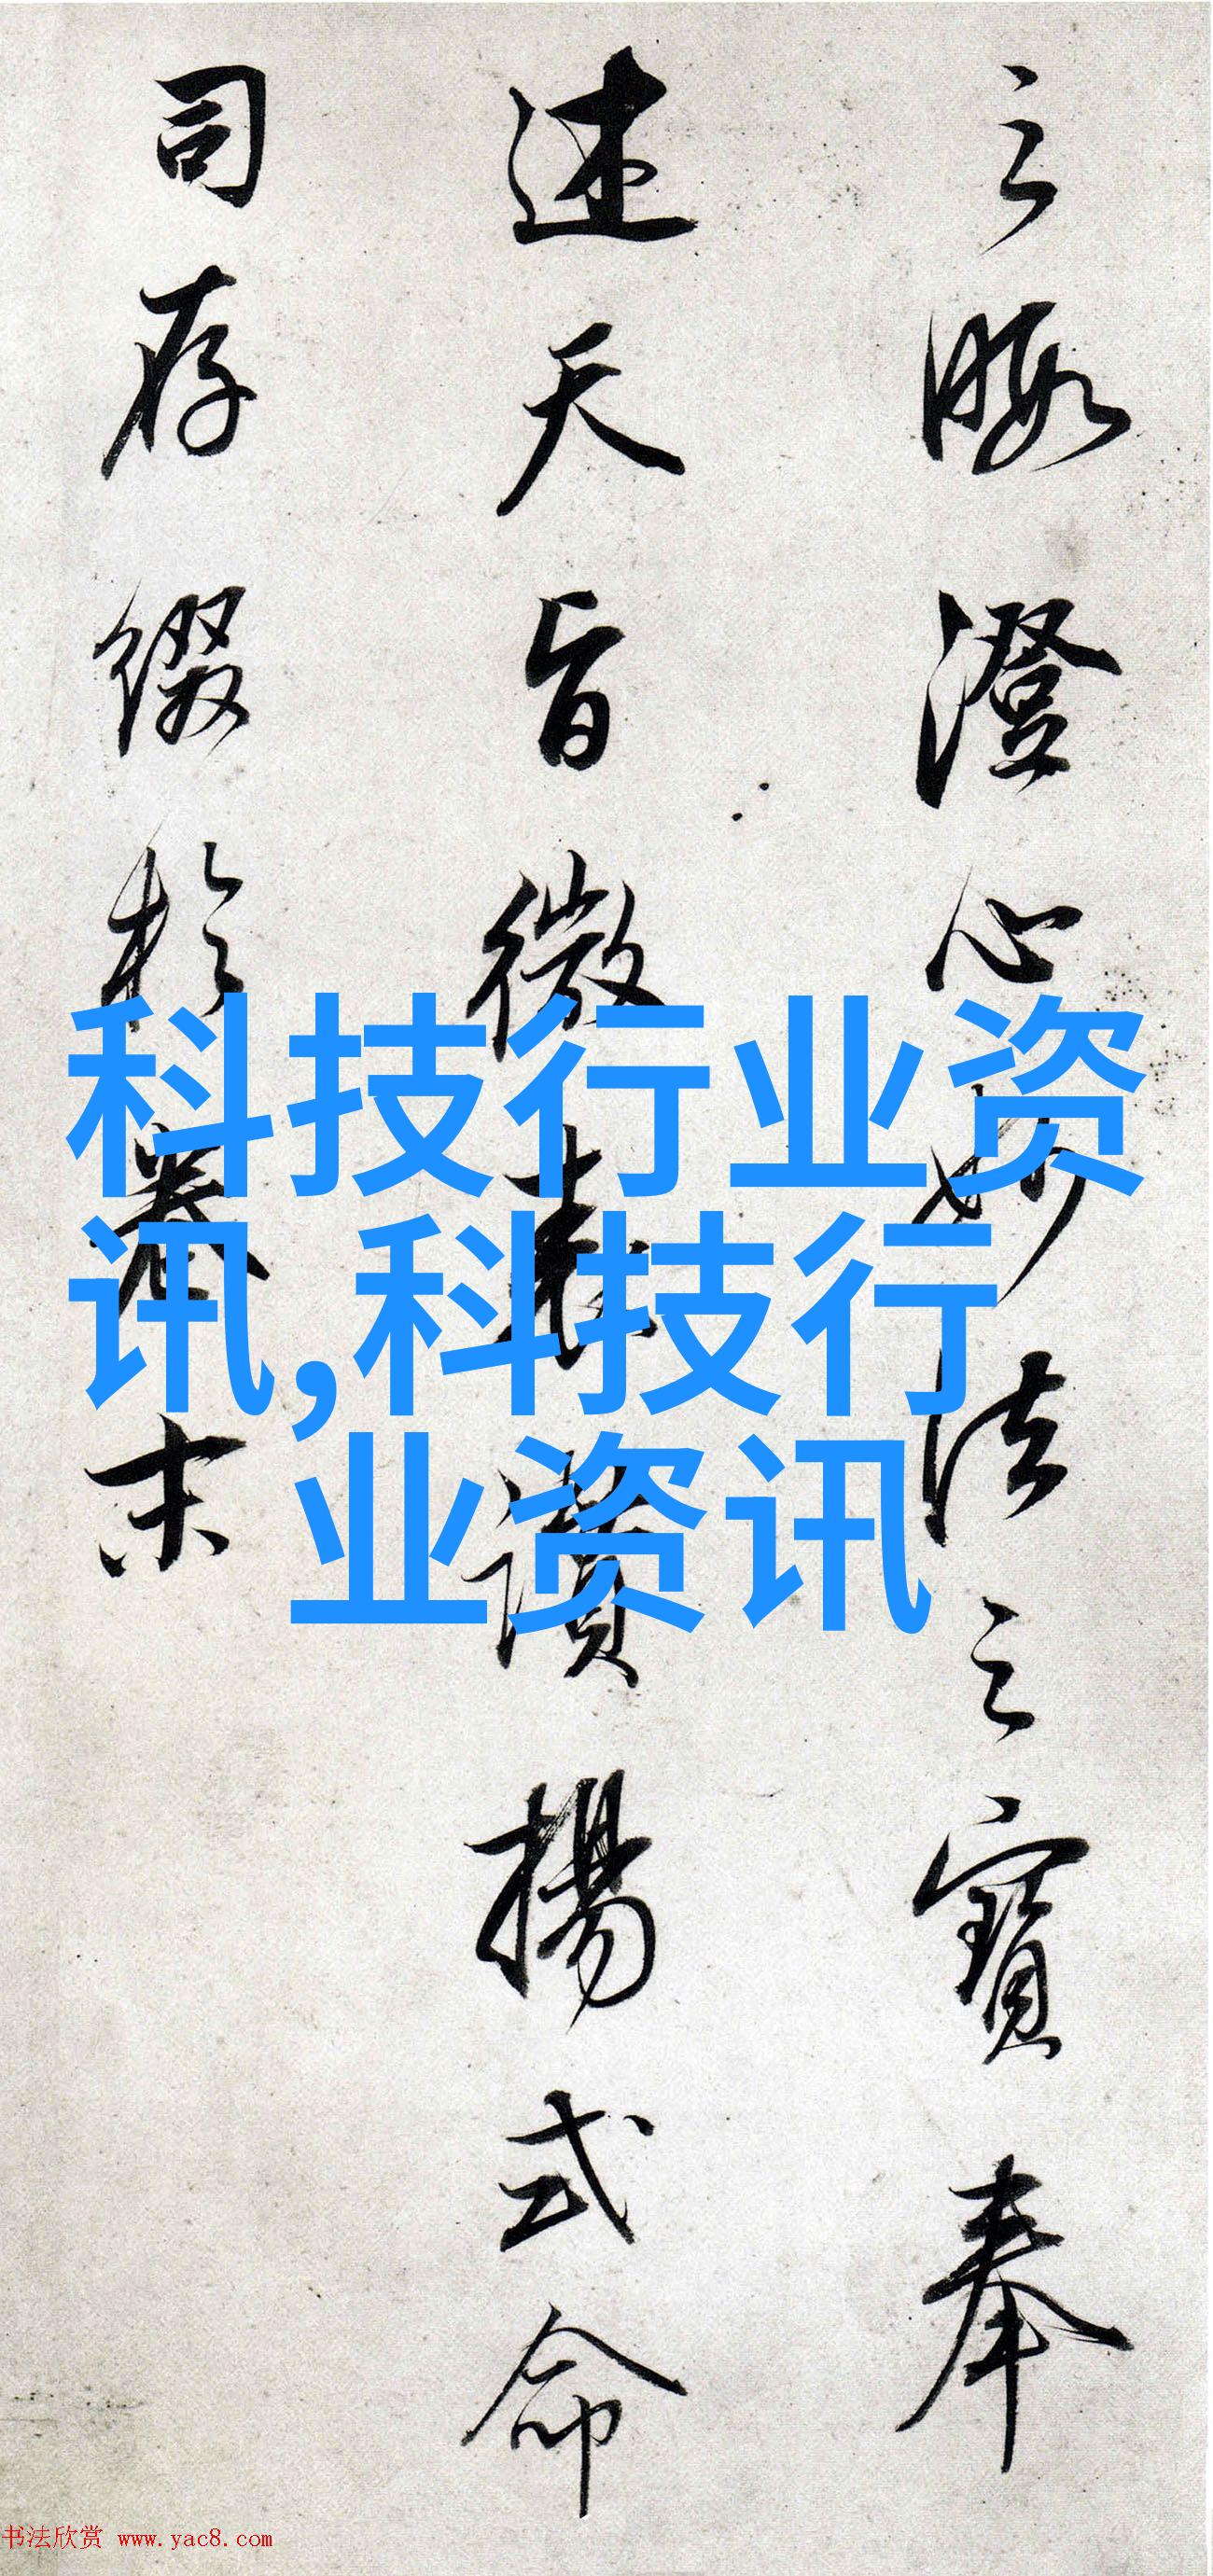 之暇澄心妙法之寶奉
述天旨微表讚揚式命
司存綴於卷末
科技行业资
讯,科技行
业资讯
书法欣赏 www.yac8.com